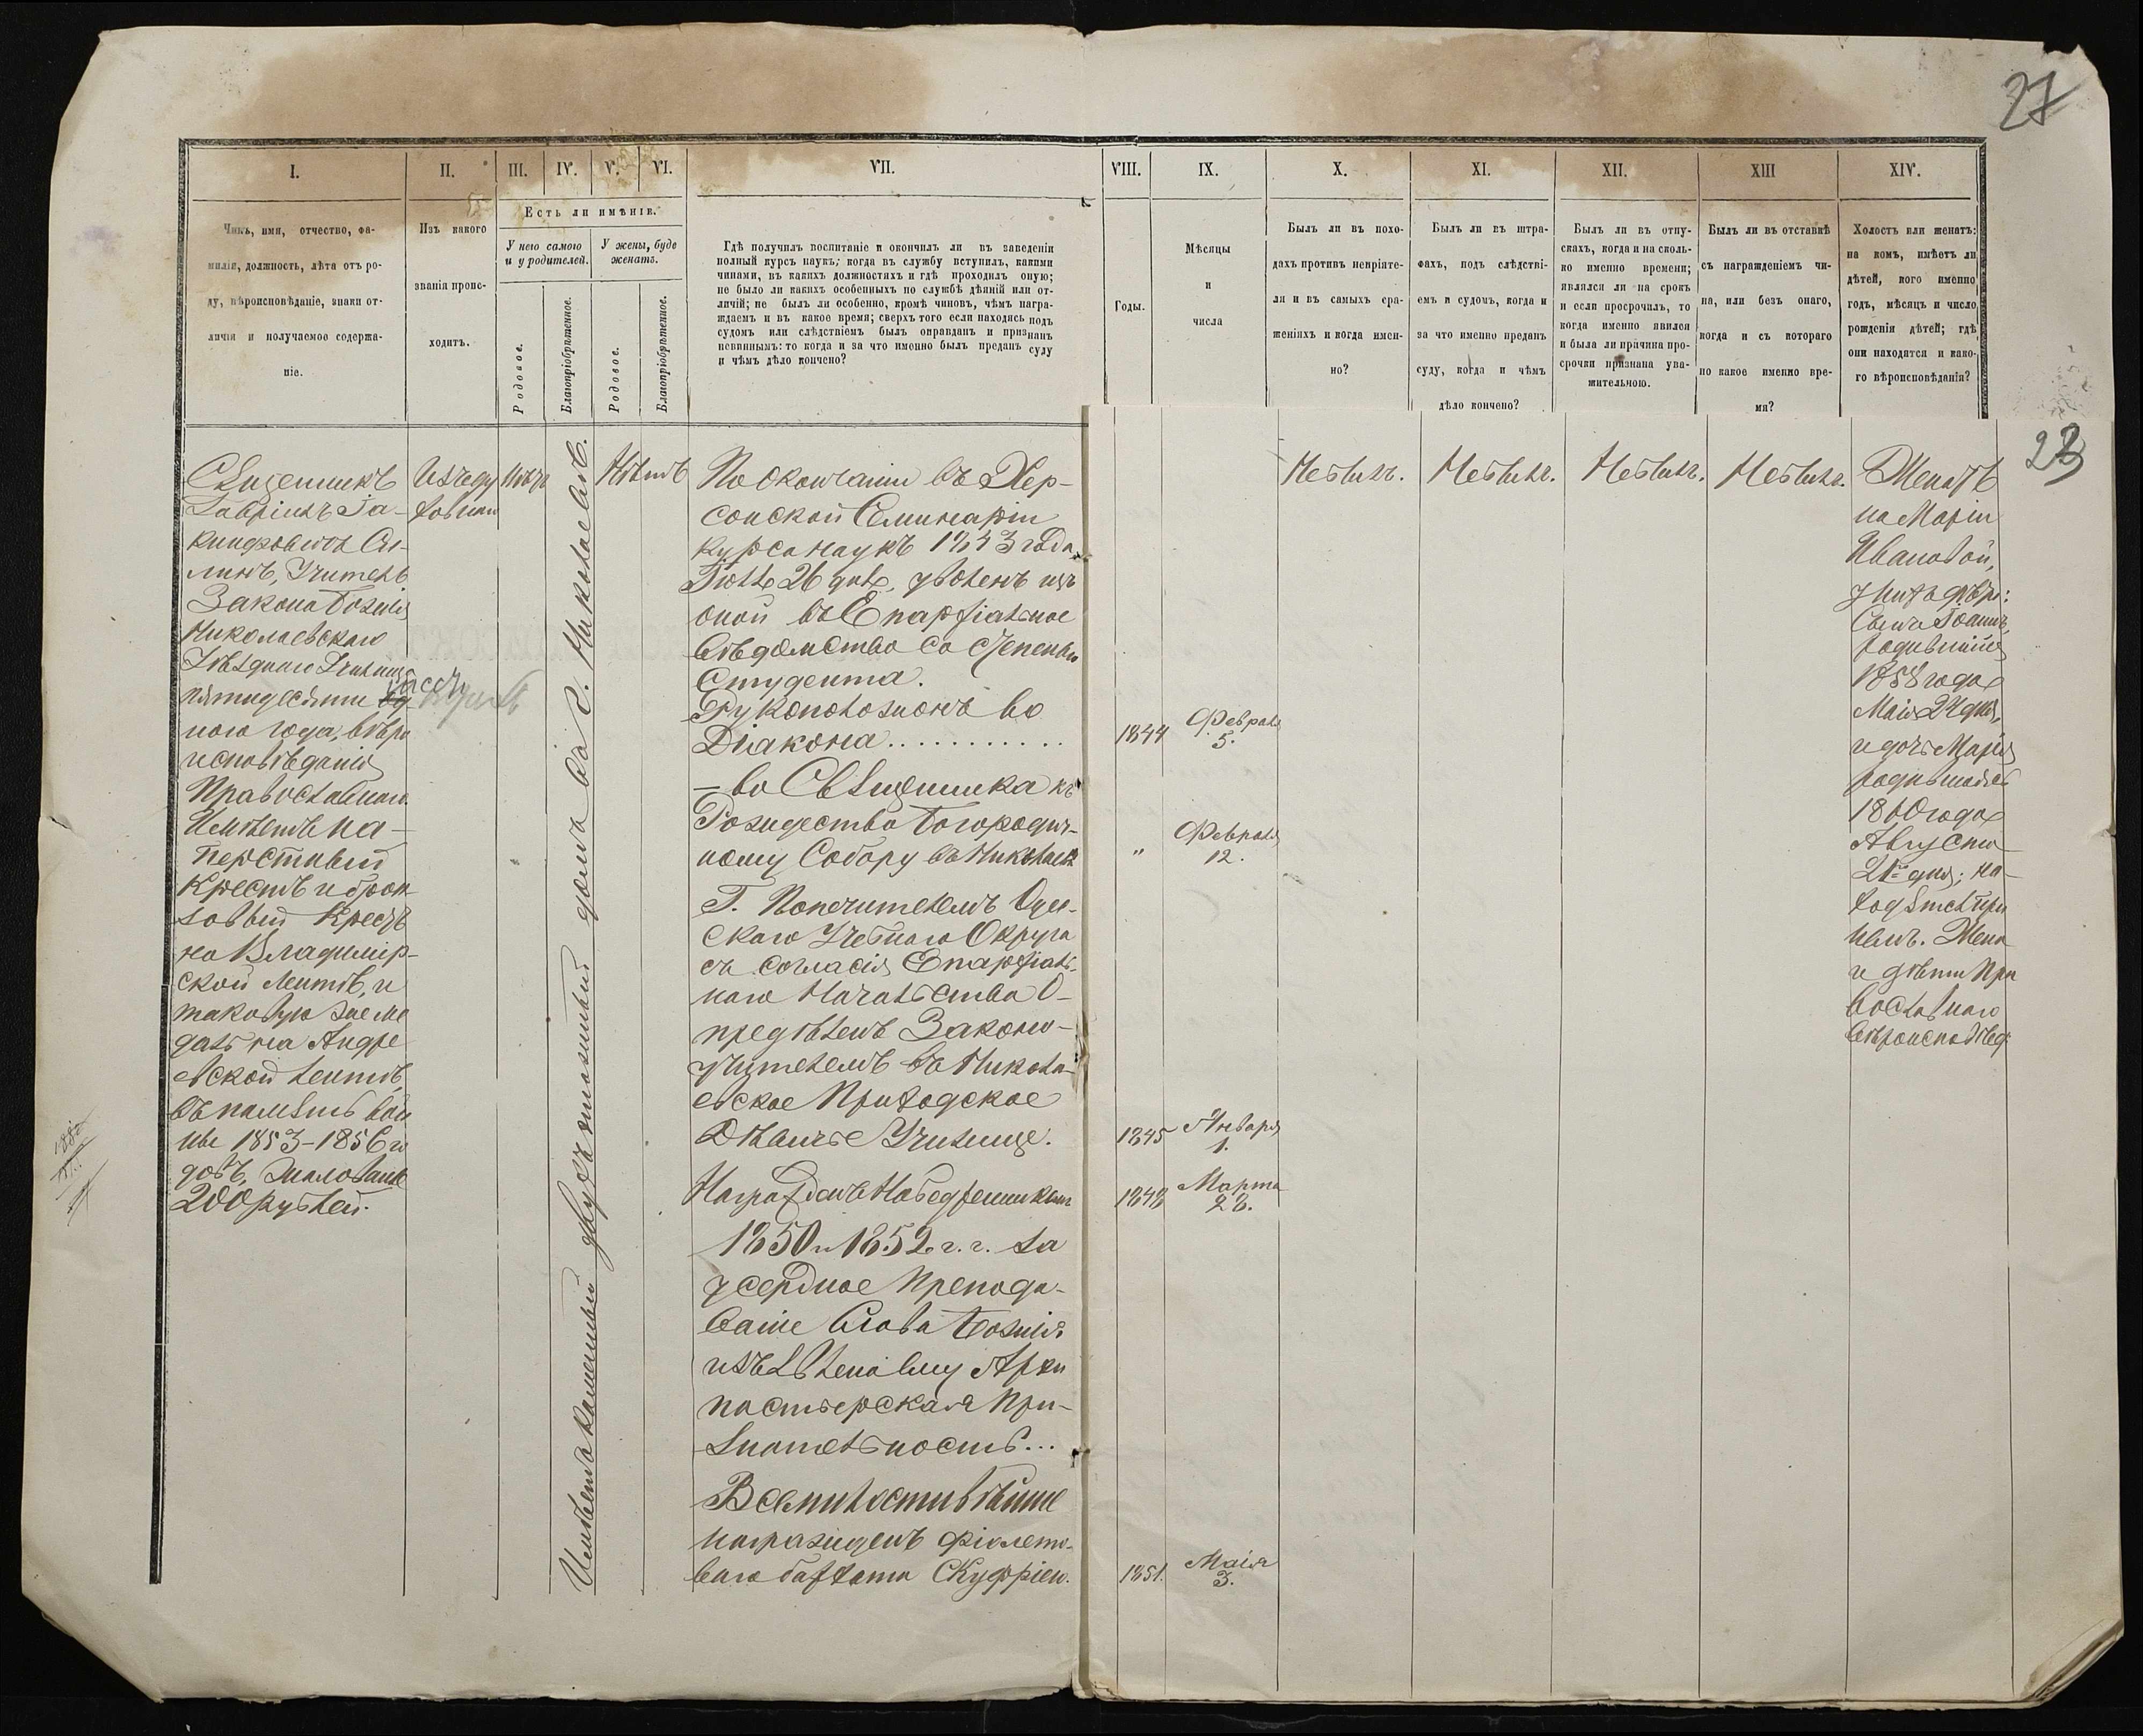 27
I.
II.
III.
IV.
V.
VI.
VII.
VIII.
IX.
X.
XI.
XII.
XIII
XIV.
Чинъ, имя, отчество, фа-
милія, должность, лѣта отъ ро-
ду, вѣроисповѣданіе, знаки от-
личія и получаемое содержа-
ніе.
Изъ какого
званія проис-
ходитъ.
Есть ли имѣніе.
У него самого
и у родителей.
У жены, буде
женатъ.
Родовое.
Благопріобрѣтенное.
Родовое.
Благопріобрѣтенное.
Гдѣ получилъ воспитаніе и окончилъ ли въ заведеніи
полный курсъ наукъ; когда въ службу вступилъ, какими
чинами, въ какихъ должностяхъ и гдѣ проходилъ оную;
не было ли какихъ особенныхъ по службѣ дѣяній или от-
личій; не былъ ли особенно, кромѣ чиновъ, чѣмъ награ-
ждаемъ и въ какое время; сверхъ того если находясь подъ
судомъ или слѣдствіемъ былъ оправданъ и признанъ
невиннымъ: то когда и за что именно былъ преданъ суду
и чѣмъ дѣло кончено?
Годы.
Мѣсяцы
и
числа
Былъ ли въ похо-
дахъ противъ непріяте-
ля и въ самыхъ сра-
женіяхъ и когда имен-
но?
Былъ ли въ штра-
фахъ, подъ слѣдстві-
емъ и судомъ, когда и
за что именно преданъ
суду, когда и чѣмъ
дѣло кончено?
Былъ ли въ отпу-
скахъ, когда и на сколь-
ко именно времени;
являлся ли на срокъ
и если просрочилъ, то
когда именно явился
и была ли причина про-
срочки признана ува-
жительною.
Былъ ли въ отставкѣ
съ награжденіемъ чи-
на, или безъ онаго,
когда и съ котораго
по какое именно вре-
мя?
Холостъ или женатъ:
на комъ, имѣетъ ли
дѣтей, кого именно
годъ, мѣсяцъ и число
рожденія дѣтей; гдѣ
они находятся и како-
го вѣроисповѣданія?
Священникъ
Гавріилъ Іа-
кинфовичъ Си-
линъ, Учитель
Закона Божія
Николаевскаго
Уѣзднаго Училища
пятидесяти
ного года, вѣро
исповѣданія
Православнаго.
Имѣетъ на-
перстный
Крестъ и брон
зовый Крестъ
на Владимір-
ской лентѣ, и
таковую же ме
даль на Андре
евской лентѣ,
въ память вой
ны 1853-1856 го
довъ, жалованье
200 рублей.
Изъ ду
ховнаго
Нѣтъ
Имѣетъ каменный двухъ этажный домъ въ г. Николаевѣ.
Нѣтъ
По окончаніи въ Хер-
сонской Семинаріи
курса наукъ 1843 года
Іюля 26 дня, уволенъ изъ
оной въ Епархіальное
вѣдомство со степенью
Студента.
Рукоположенъ во
Діакона...........
— во Священника къ
Рождество Богородич-
ному Собору въ Николаевѣ
Г. Попечителемъ Одес-
скаго Учебнаго Округа
съ согласія Епархіаль-
наго Начальства О-
предѣленъ Законо-
учителемъ въ Никола-
евское Приходское
Дѣвичье Училище.
Награжденъ Набедренникомъ
1850 и 1852 г. г. за
усердное Препода-
ваніе Слова Божія
изъявлена ему Архи
пастырская При-
знательность...
Всемилостивѣйше
награжденъ фіолето-
ваго бархата Скуфьею.
1844
Февраля
5.
"
Февраля
12.
1845
Января
1.
1848
Марта
28.
1851.
Маія
3.
Небылъ.
Небылъ.
Небылъ.
Небылъ.
Женатъ
на Маріи
Ивановой,
у нихъ дѣти:
Сынъ Іоаннъ,
родившійся
1858 года
Маія 24 дня,
и дочь Марія
родившаяся
1860 года
Августа
21го дня; на-
ходятся при
немъ. Жена
и дѣти Пра
вославнаго
Вѣроисповѣд.